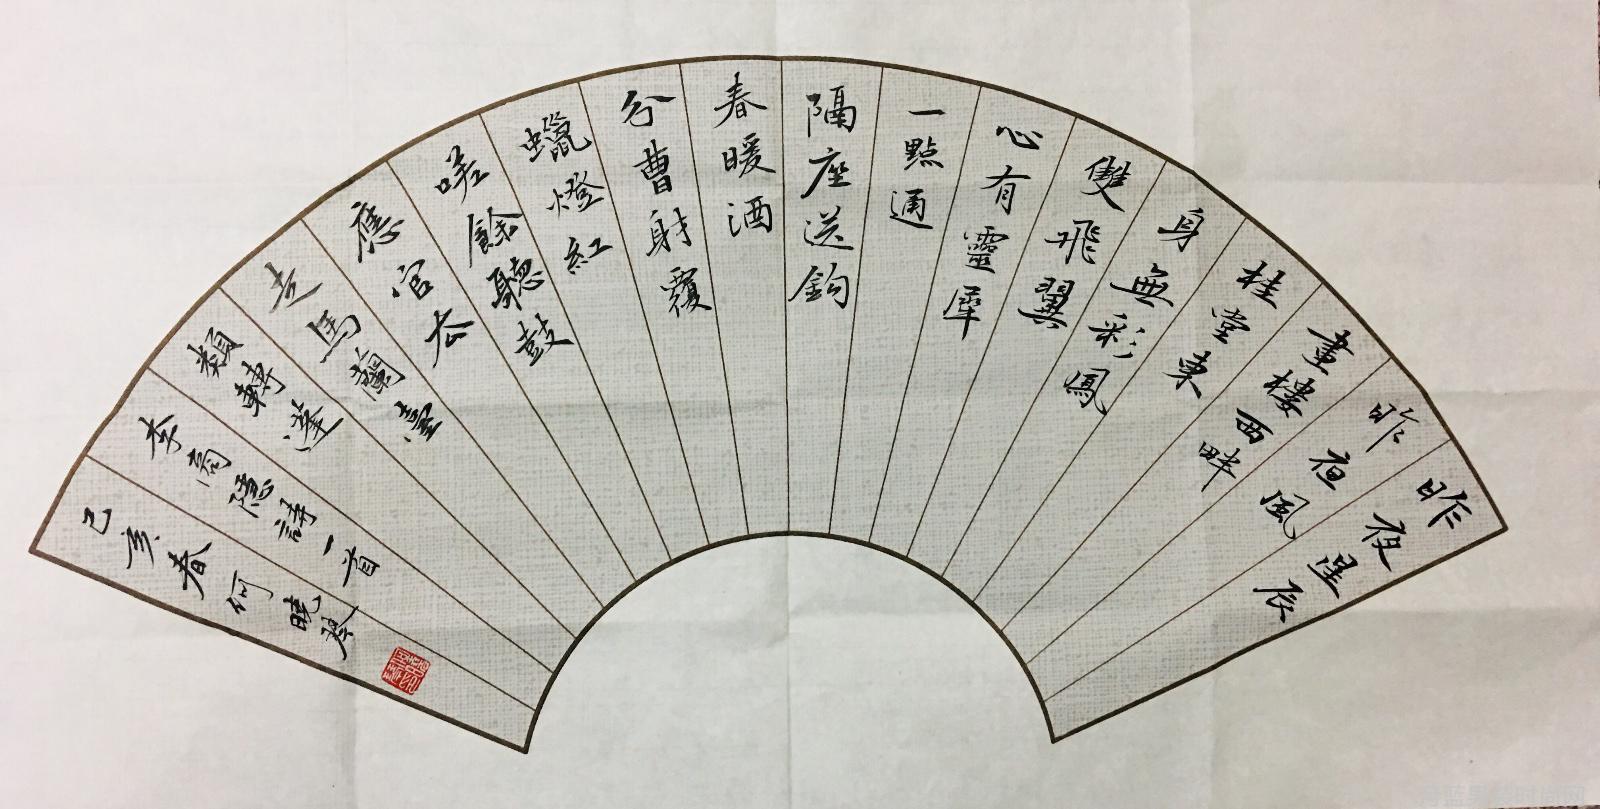 昨夜星辰
昨夜風
畫樓西畔
桂堂東
身無彩鳳
雙飛翼
心有靈犀
一點通
隔座送鉤
春暖酒
分曹射覆
蠟燈紅
嗟餘聽鼓
應官去
走馬蘭臺
類轉蓬
李商隱詩一首
己亥春何曉琴